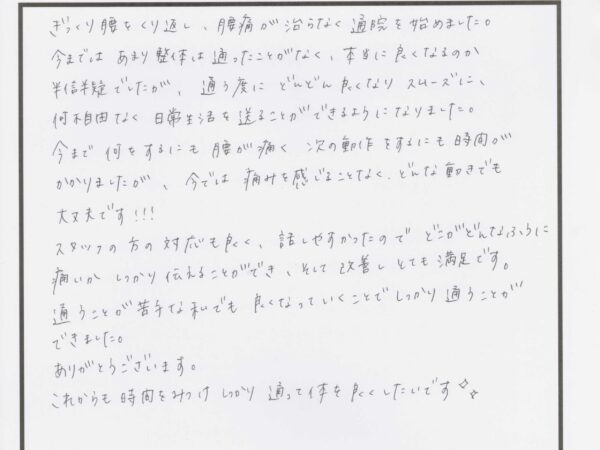 ぎっくり腰をくり返し、腰痛が治らなく通院を始めました。
今までは あまり整体は通ったことがなく、本当に良くなるのか
半信半疑でしたが、通う度に どんどん良くなり スムーズに、
何不自由なく 日常生活を送ることができるようになりました。
今まで 何をするにも 腰が痛く 次の動作をするにも時間が
かかりましたが、今では 痛みを感じることなく、どんな動きでも
大丈夫です!!!
スタッフの方の対応も良く、話しやすかったので どこがどんなふうに
痛いか しっかり伝えることができ、そして 改善し とても満足です。
通うことが苦手な私でも 良くなっていくことでしっかり通うことが
できました。
ありがとうございます。
これからも 時間をみつけ しっかり 通って体を良くしたいです